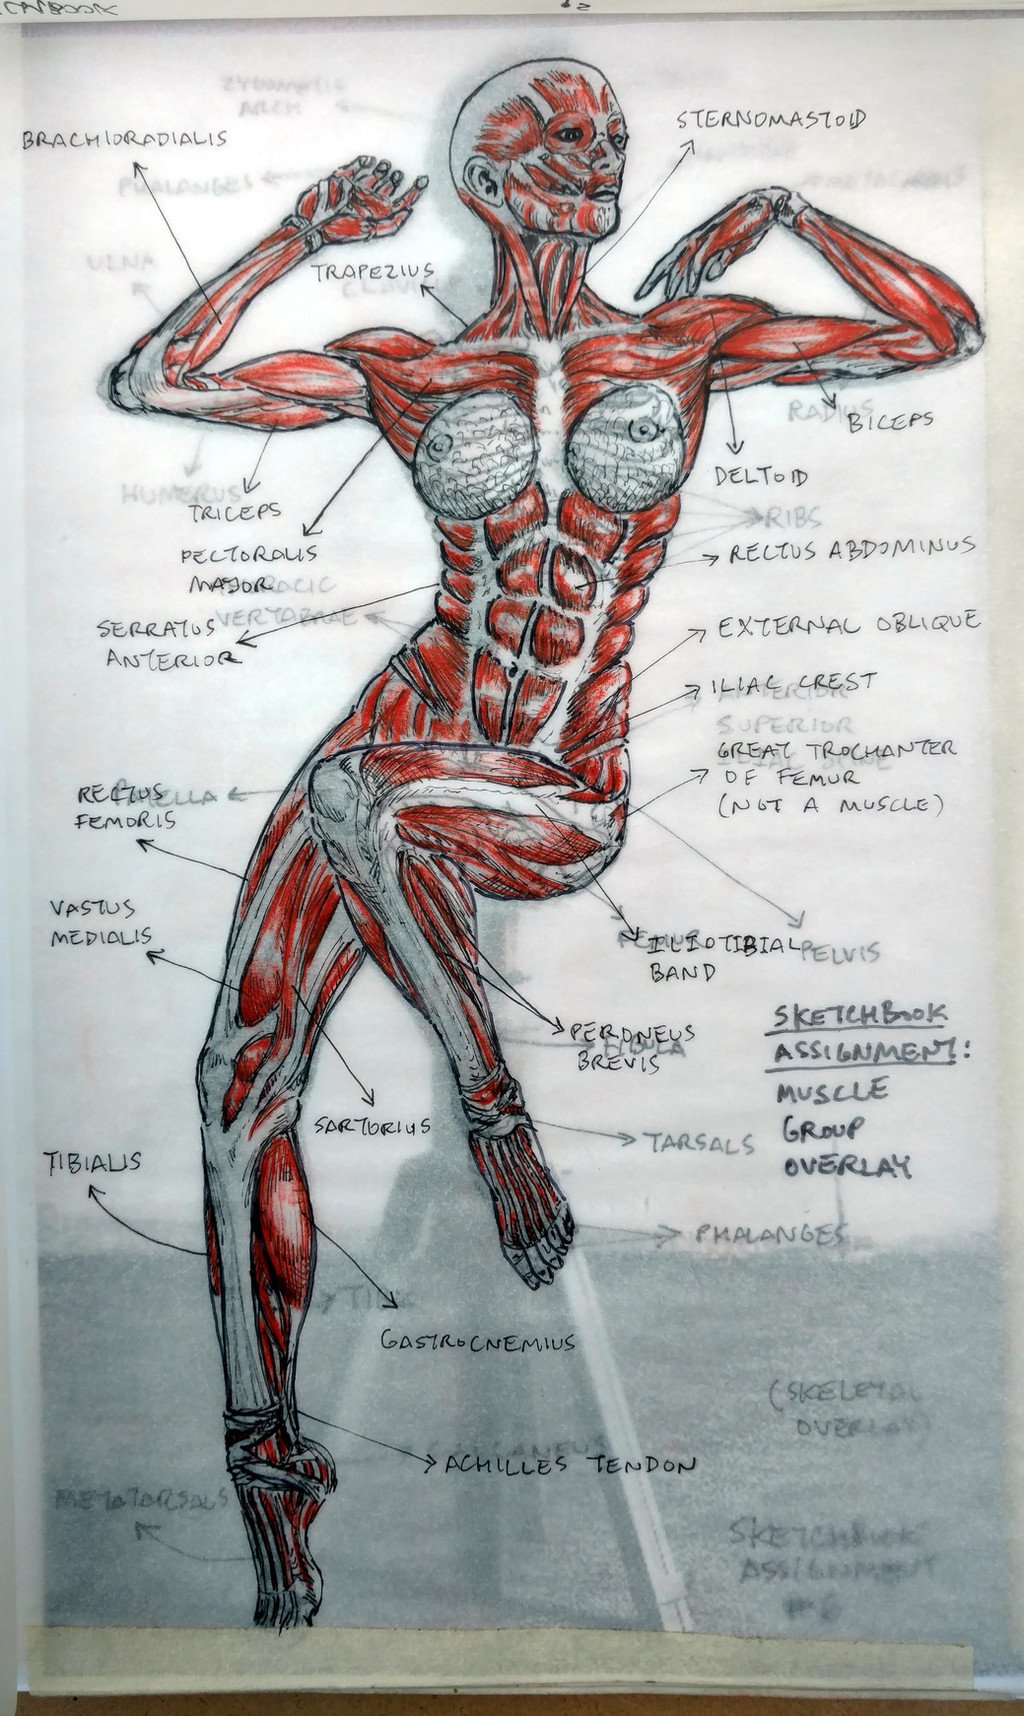 ZYGOMATIC
ARCH
STERNOMASTOID
BRACHIORADIALIS
PHALANGES
ULNA
TRAPEZIUS
RADIUS
BICEPS
DELTOID
HUMERUS
TRICEPS
RIBS
PECTORALIS
MAJOR
RECTUS ABDOMINUS
VERTABRAE
SERRATUS
ANTERIOR
EXTERNAL OBLIQUE
ILIAC CREST
ANTERIOR
SUPERIOR
GREAT TROCHANTER
OF FEMUR
(NOT A MUSCLE)
RECTUS
FEMORIS
VASTUS
MEDIALIS
ILIOTIBIAL
BAND
PELVIS
SKETCHBOOK
ASSIGNMENT:
MUSCLE
GROUP
OVERLAY
PERONEUS
BREVIS
FIBULA
SARTORIUS
TARSALS
TIBIALIS
PHALANGES
GASTROCNEMIUS
(SKELETAL
OVERLAY)
ACHILLES TENDON
METATARSALS
SKETCHBOOK
ASSIGNMENT